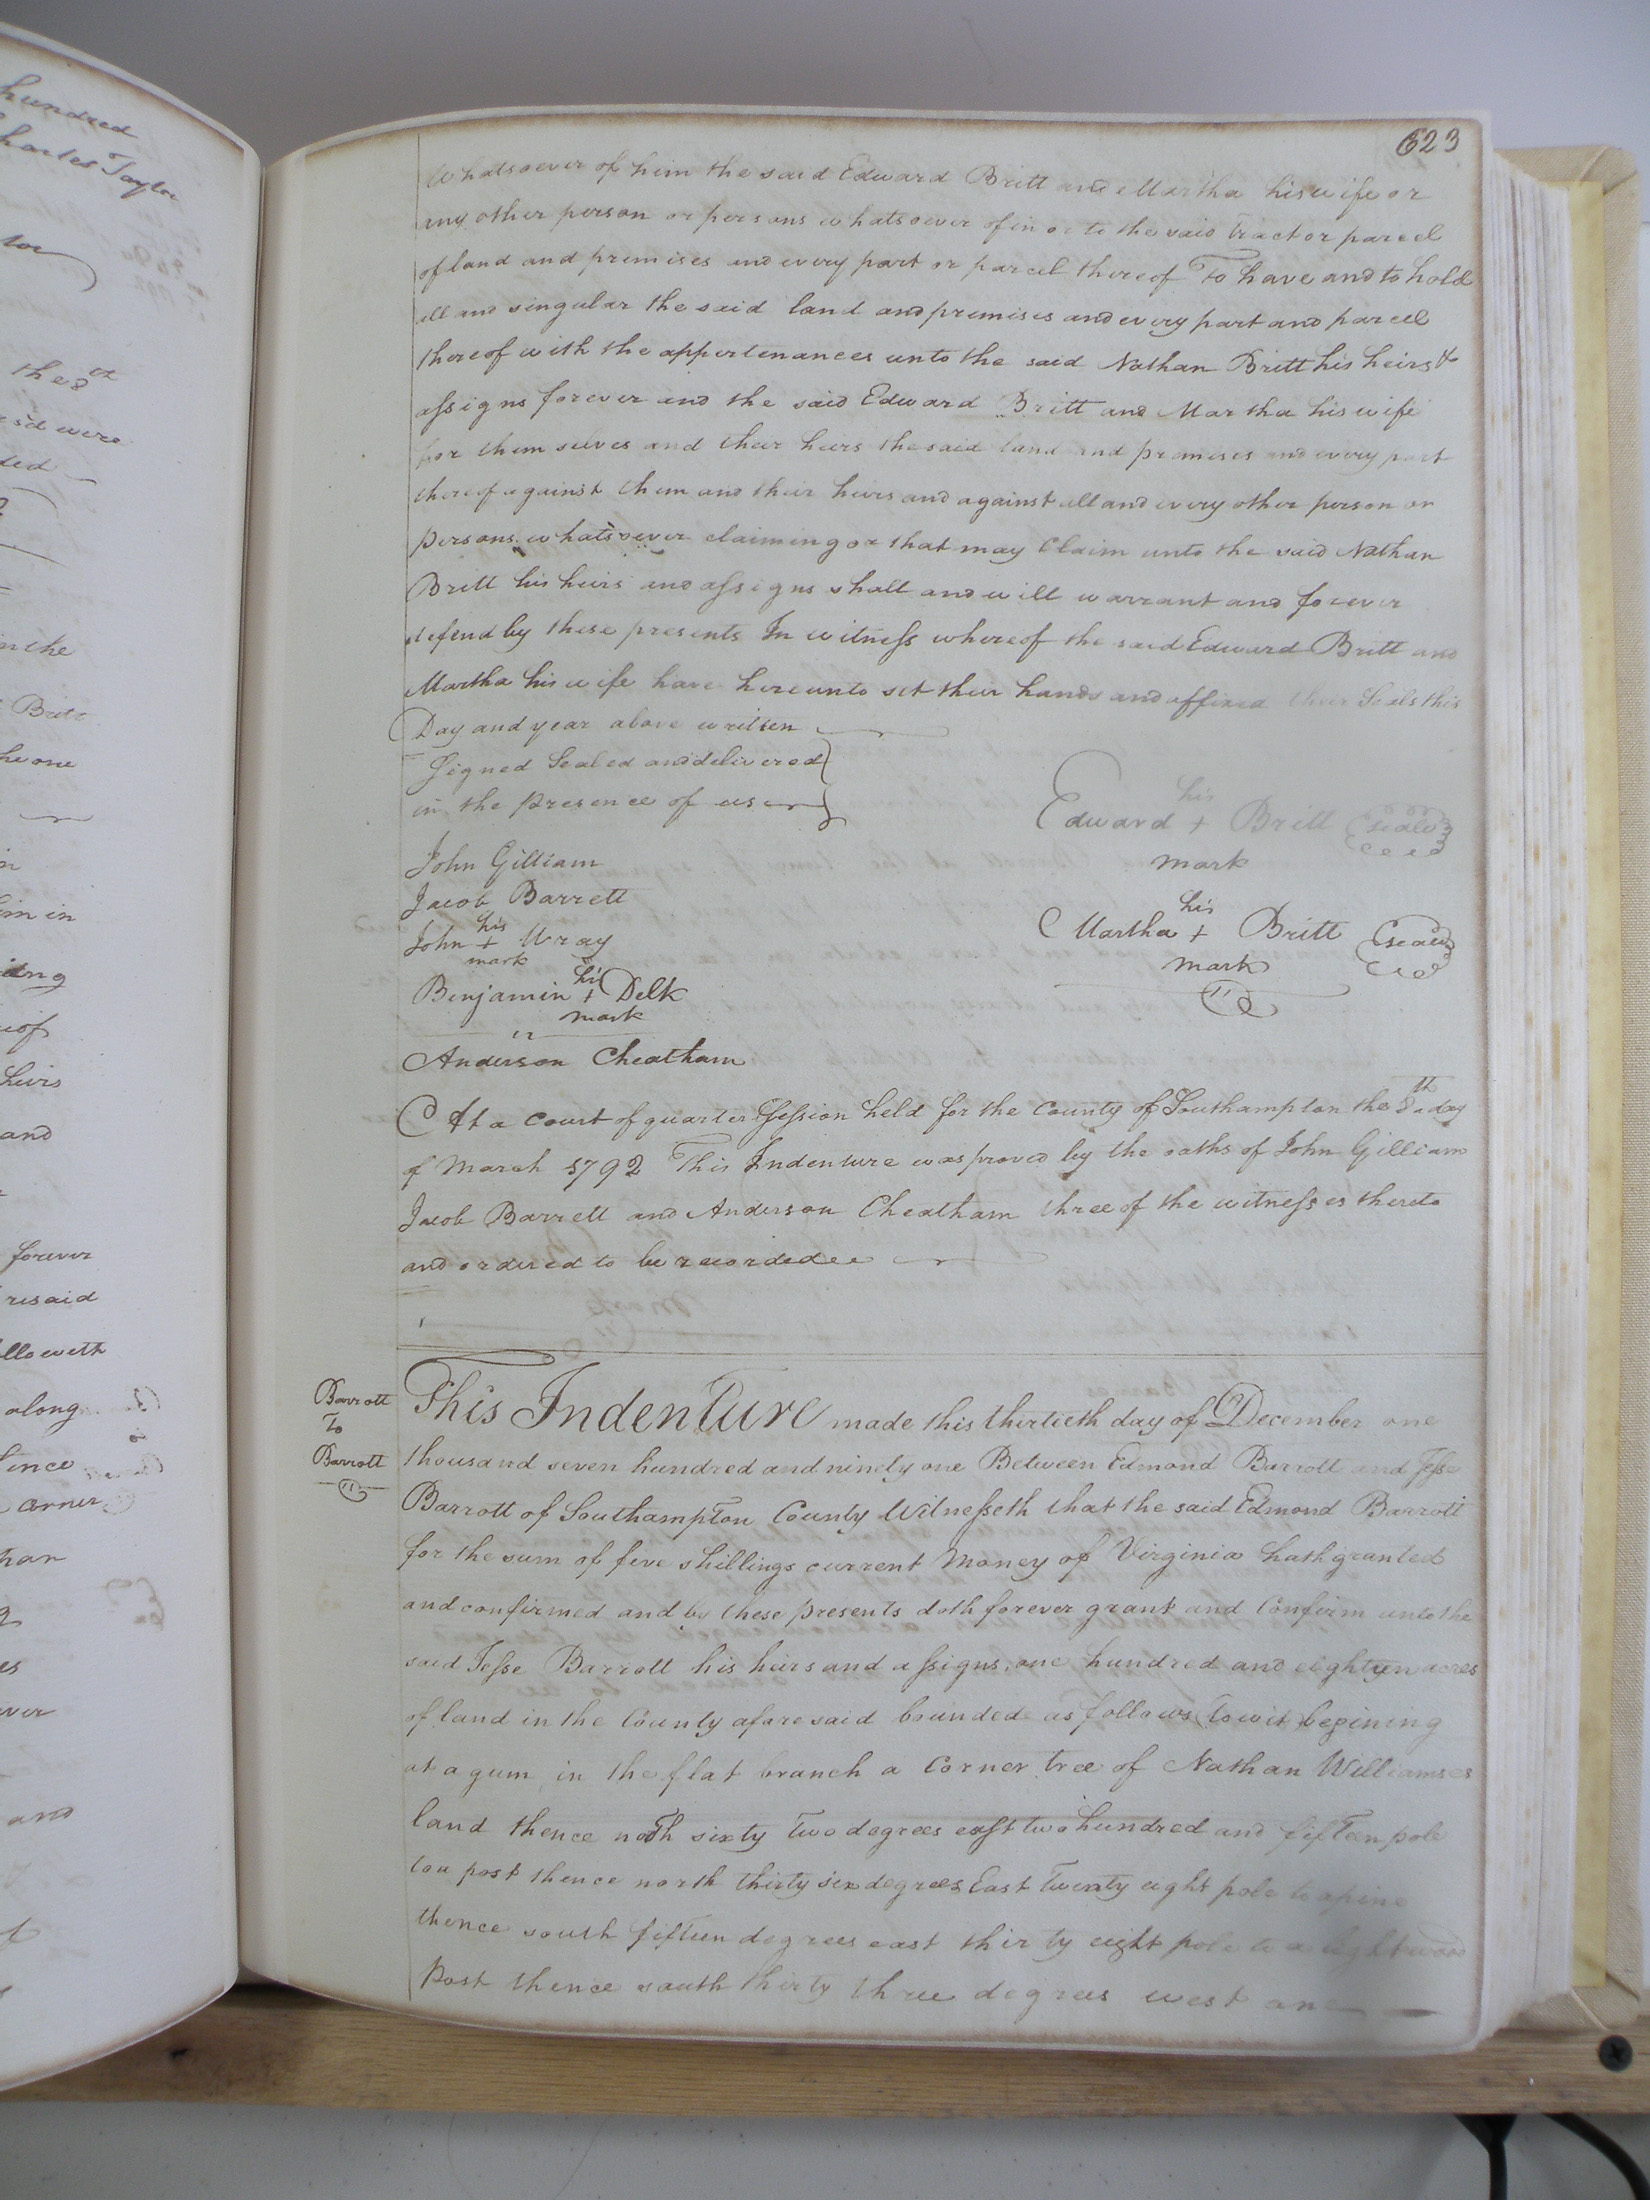 hundred
Charles Taylor
the 8th
were
ded
in the
Britt
he one
him in
heirs
and
forever
resaid
lloweth
along
corner
and
623
Whatsoever of him the said Edward Britt and Martha his wife or
any other person or persons whatsoever of in or to the said Tract or parcel
of land and premises and every part or parcel thereof To have and to hold
all and singular the said land and premises and every part and parcel
thereof with the appertenances unto the said Nathan Britt his heirs &
assigns forever and the said Edward Britt and Martha his wife
for themselves and their heirs the said land and premises and every part
thereof against them and their heirs and against all and every other person or
persons whatsoever claiming or that may Claim unto the said Nathan
Britt his heirs and assigns shall and will warrant and forever
defend by these presents In witness whereof the said Edward Britt and
Martha his wife have hereunto set their hands and affixed their Seals this
Day and year above written
Signed Sealed and delivered
in the presence of us
his
Edward + Britt (seal)
mark
John Gilliam
Jacob Barrett
his
John + Wray
mark
his
Martha + Britt (seal)
mark
his
Benjamin + Delk
mark
Anderson Cheatham
At a Court of quarter Session held for the County of Southampton the 8th day
of March 1792 This Indenture was proved by the oaths of John Gilliam
Jacob Barrett and Anderson Cheatham three of the witnesses thereto
and ordered to be recorded
Barrott
To
Barrott
This Indenture made this thirtieth day of December one
thousand seven hundred and ninety one Between Edmond Barrott and Jesse
Barrott of Southampton County Witnesseth that the said Edmond Barrott
for the sum of five shillings current Money of Virginia hath granted
and confirmed and by these presents doth forever grant and Confirm unto the
said Jesse Barrott his heirs and assigns, one hundred and eighteen acres
of land in the County aforesaid bounded as follows (towit) begining
at a gum in the flat branch a Corner tree of Nathan Williamses
land thence north sixty Two degrees east two hundred and fifteen pole
to a post thence north thirty six degrees East Twenty eight pole to a pine
thence south fifteen degrees east thirty eight pole to a lightwood
Post thence south thirty three degrees west one